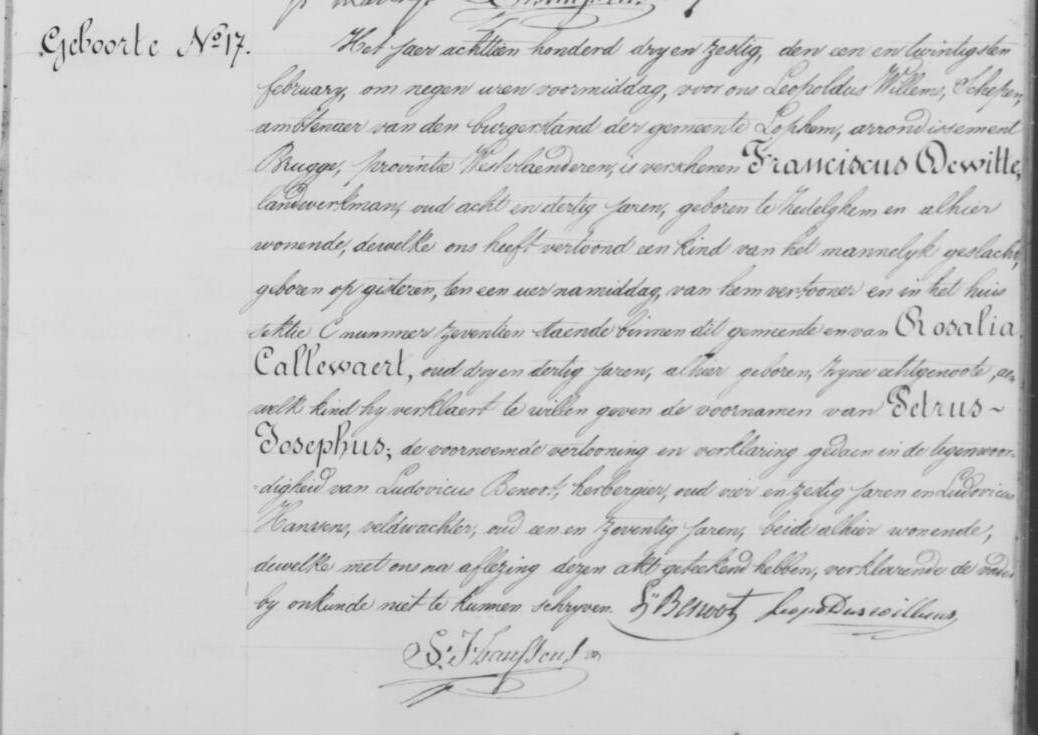 Geboorte No 17.
Het jaer achttien honderd dry en zestig, den een en twintigsten
february, om negen uren voormiddag, voor ons Leopoldus Willems, Schepen,
ambtenaer van den burgerstand der gemeente Lophem, arrondissement
Brugge, provintie Westvlaenderen, is verschenen Franciscus Dewitte,
landwerkman, oud acht en dertig jaren, geboren te Zedelghem en alhier
wonende, dewelke ons heeft vertoond een kind van het mannelyk geslacht,
geboren op gisteren, ten een uer namiddag, van hem vertooner en in het huis
sektie C nummer zeventien staende binnen dit gemeente en van Rosalia
Callewaert, oud dry en dertig jaren, alhier geboren, zyne echtgenoote, aen
welk kind hy verklaert te willen geven de voornamen van Petrus-
Josephus; de voornoemde vertooning en verklaring gedaen in de tegenwoor-
digheid van Ludovicus Benoot, herbergier, oud vier en zestig jaren en Ludovicus
Hanssens, veldwachter, oud een en zeventig jaren, beide alhier wonende,
dewelke met ons na aflezing dezen akt geteekend hebben, verklarende de vader
by onkunde niet te kunnen schryven. Ls Benoot Leopoldus willems
L. Hanssens